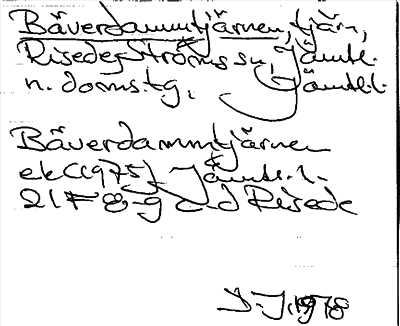 Bäverdammtjärnen, tjärn,
Risede, Ströms sn, Jämtl.
n. doms.tg, Jämtl.l.
Bäverdammtjärnen
ek (1975) Jämtl. l.
21F 8-g Risede
1978